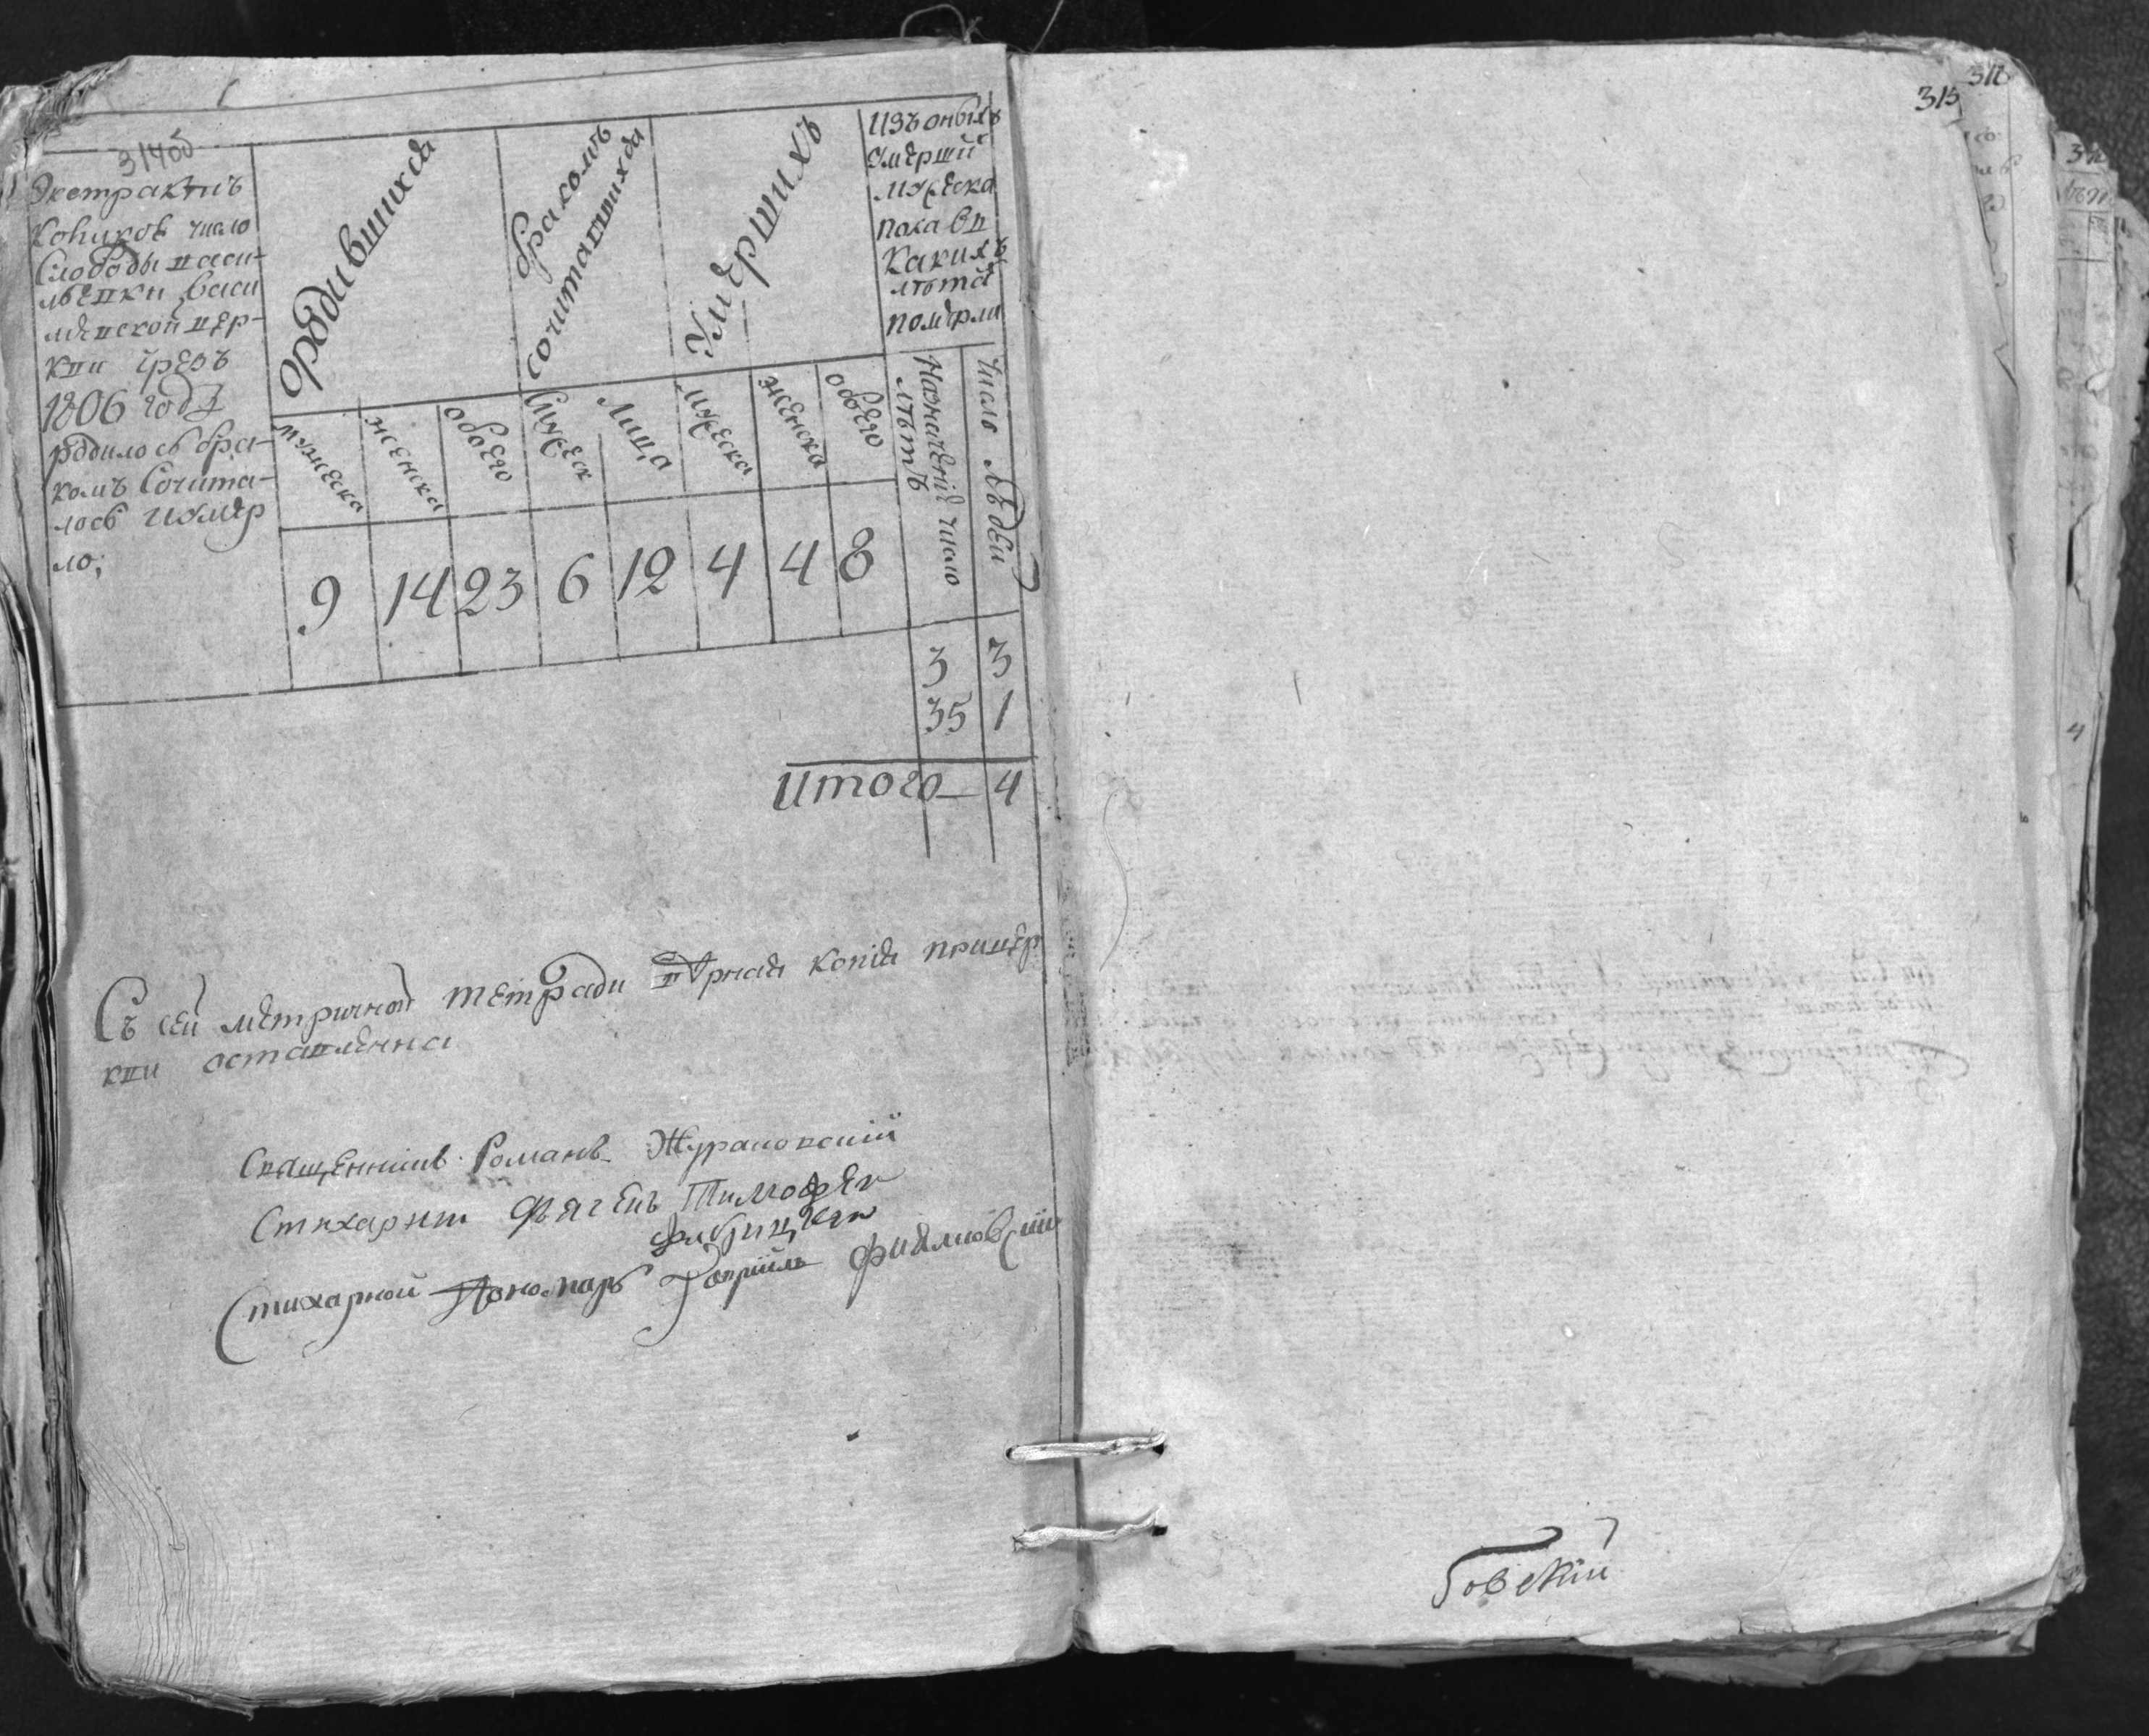 314об
Экстрактъ
коликое число
Слободы васи-
лъевки васи
лиевской цер-
кви чрезъ
1806 годъ
родилось бра-
комъ сочита-
лось и умер
ло;
ородившихся
бракомъ
сочитавшихся
умершихъ
изъ оныхъ
умерший
мужеска
пола въ
какихъ
лѣта
померли
мужеска
женска
обоего
супруж
лица
мужеска
женска
обоего
Назначение число
лѣтъ
число людей
9 14 23 6 12 4 4 8
3 3
35 1
итого 4
Съ сей метричной тетради вѣрная копія при цер
кви оставленна
Священникъ Романъ Журавовскій
Стихарный Тимофей
Стихарной Пономарь Гавріилъ
315
318
говскій